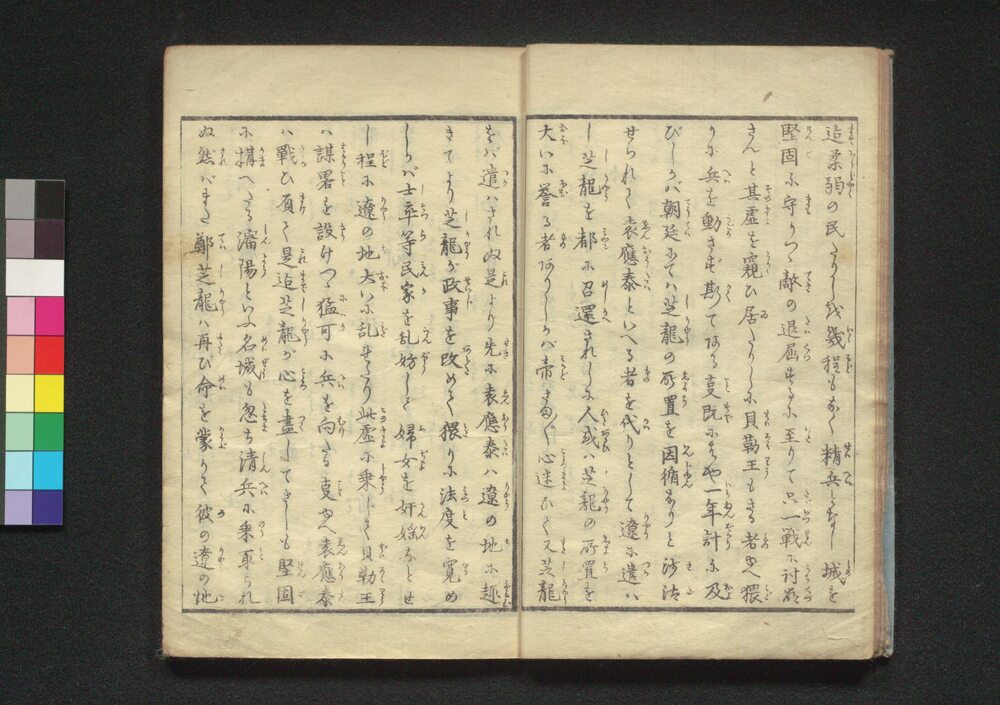 迄柔弱の民たりしも幾程もなく精兵となし城を
堅固に守りつゝ敵の退屈するに至りて只一戦に討取
きんと其虚を窺ひ居たりしに貝勒王もさる者にて猥
りに兵を動さず斯てある事既にはや一年計に及
びしかバ朝廷にてハ芝龍の所置を因循なりと沙汰
せられて袁應泰といへる者を代りとして遼に遣ハ
し芝龍を都に召還されしに人或ハ芝龍の所置を
大いに誉る者ありしかバ帝も心迷ひて又芝龍
をバ遣ハされぬ是より先に袁應泰ハ遼の地に趣
きてより芝龍が政事を改めて猥りに法度を寛め
しかバ士卒等民家を乱妨しと婦女を奸婬などせ
し程に遼の地大いに乱せり此虚に乗じて貝勒王
ハ謀畧を設けつゝ猛可に兵を向たる事にて袁應泰
ハ戦ひ負て是迄芝龍が心を盡してきしも堅固
に構へたる瀋陽といふ名城も忽ち清兵に乗取られ
ぬ然バまた鄭芝龍ハ再び命を蒙りて彼の遼の地